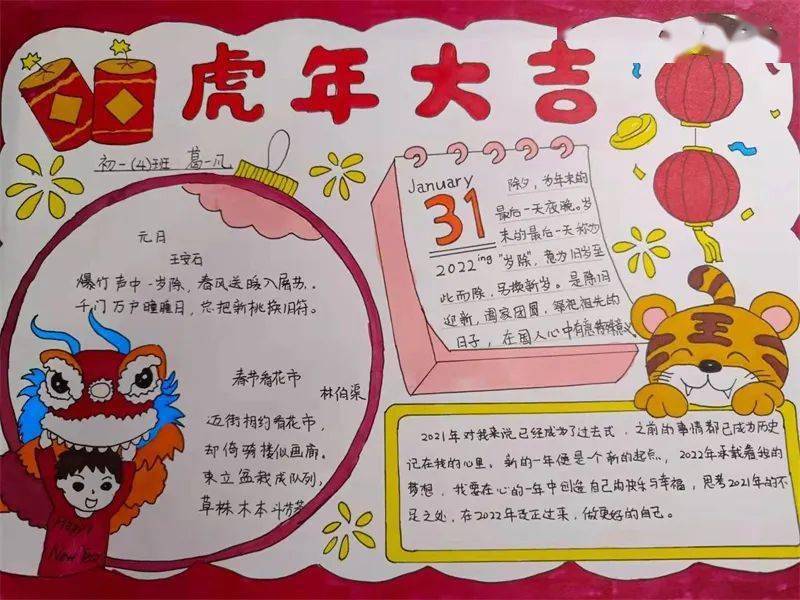 虎年大吉
初一(4)班 葛一凡
元日
王安石
爆竹声中一岁除,春风送暖入屠苏。
千门万户曈曈日,总把新桃换旧符。
春节看花市
林伯渠
迈街相约看花市,
却倚骑楼似画廊。
束立盆栽成队列,
草株木本斗芬芳
Happy
New Year
January
31
2022
除夕,为年末的
最后一天夜晚。岁
末的最后一天称为
"岁除",意为旧岁至
此而除,另换新岁。是除旧
迎新,阖家团圆,祭祀祖先的
日子,在国人心中有意义
王
2021年对我来说已经成为了过去式,之前的事情都已成为历史
记在我的心里。新的一年便是个新的起点,2022年承载着我的
梦想,我要在心的一年中创造自己的快乐与幸福,思考2021年的不
足之处,在2022年改正过来,做更好的自己。